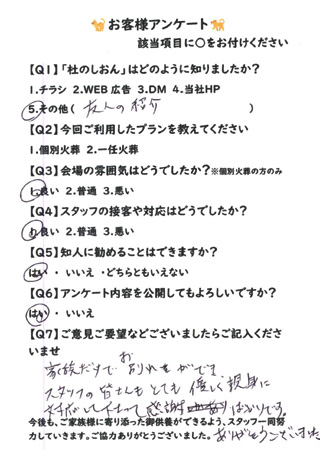 お客様アンケート
該当項目に〇をお付けください
【Q1】「杜のしおん」はどのように知りましたか?
1.チラシ 2.WEB広告 3.DM 4.当社HP
5.その他( 友人の紹介 )
【Q2】今回ご利用したプランを教えてください
1.個別火葬 2.一任火葬
【Q3】会場の雰囲気はどうでしたか?※個別火葬の方のみ
1.良い 2.普通 3.悪い
【Q4】スタッフの接客や対応はどうでしたか?
1.良い 2.普通 3.悪い
【Q5】知人に勧めることはできますか?
はい ・ いいえ ・どちらともいえない
【Q6】アンケート内容を公開してもよろしいですか?
はい ・ いいえ
【Q7】ご意見ご要望などございましたらご記入くださ
いませ
家族だけでお別れをができ、
スタッフの皆さんもとても優しく親身に
対応して下さって感謝ばかりです。
ありがとうございました
今後も、ご家族様に寄り添った御供養ができるよう、スタッフ一同努
力していきます。ご協力ありがとうございました。